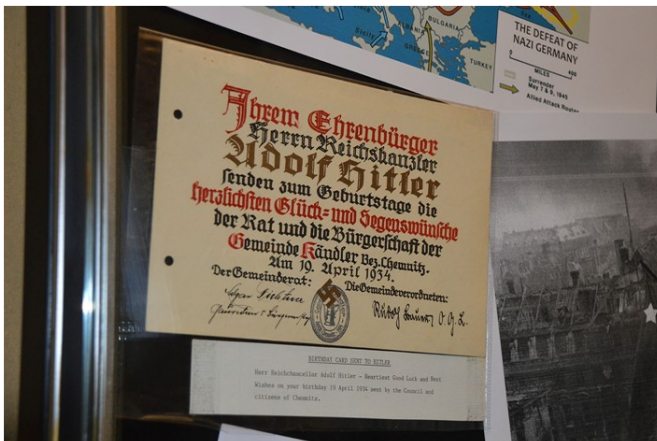 BULGARIA
ALBANIA
GREECE
TURKEY
Sicily
THE DEFEAT OF
NAZI GERMANY
0 400
MILES
Surrender
May 7 & 9, 1945
Allied Attack Routes
Ihrem Ehrenbürger
Herrn Reichskanzler
Adolf Hitler
senden zum Geburtstage die
herzlichsten Glück- und Segenswünsche
der Rat und die Bürgerschaft der
Gemeinde Kändler Bez. Chemnitz.
Am 19. April 1934.
Der Gemeinderat: Die Gemeindeverordneten:
BIRTHDAY CARD SENT TO HITLER
Herr Reichchancellor Adolf Hitler - Heartiest Good Luck and Best
Wishes on your birthday 19 April 1934 sent by the Council and
citizens of Chemnitz.